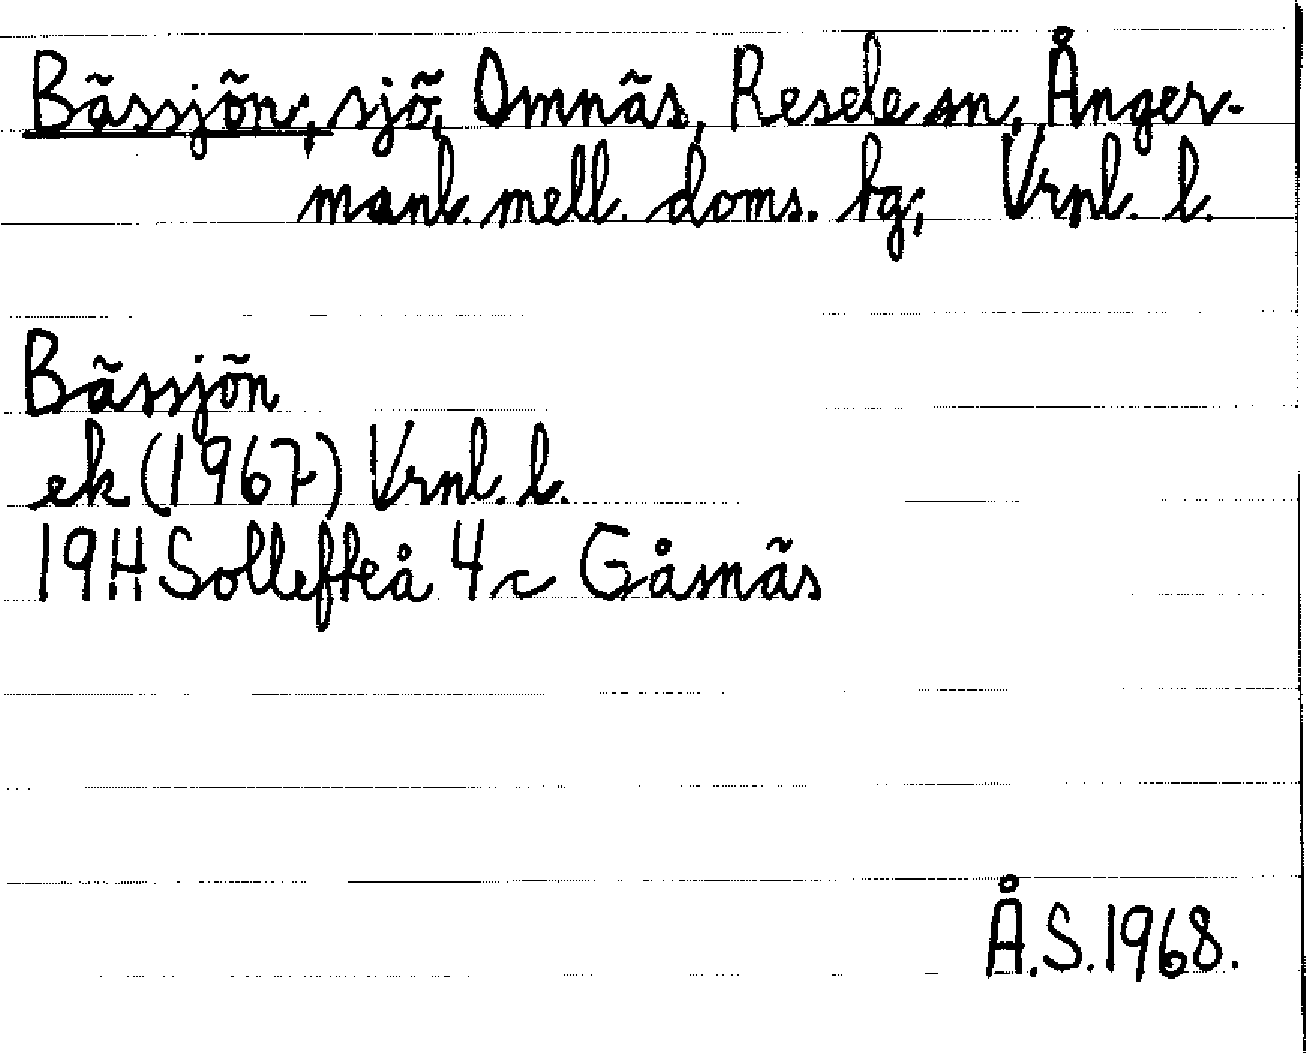 Bässjön, sjö, Omnäs, Resele sn, Ånger-
manl. mell. doms. hg; Vrnl. l.
Bässjön
ek (1967) Vrnl. l.
19H Sollefteå 4c Gåsnäs
Å.S. 1968.